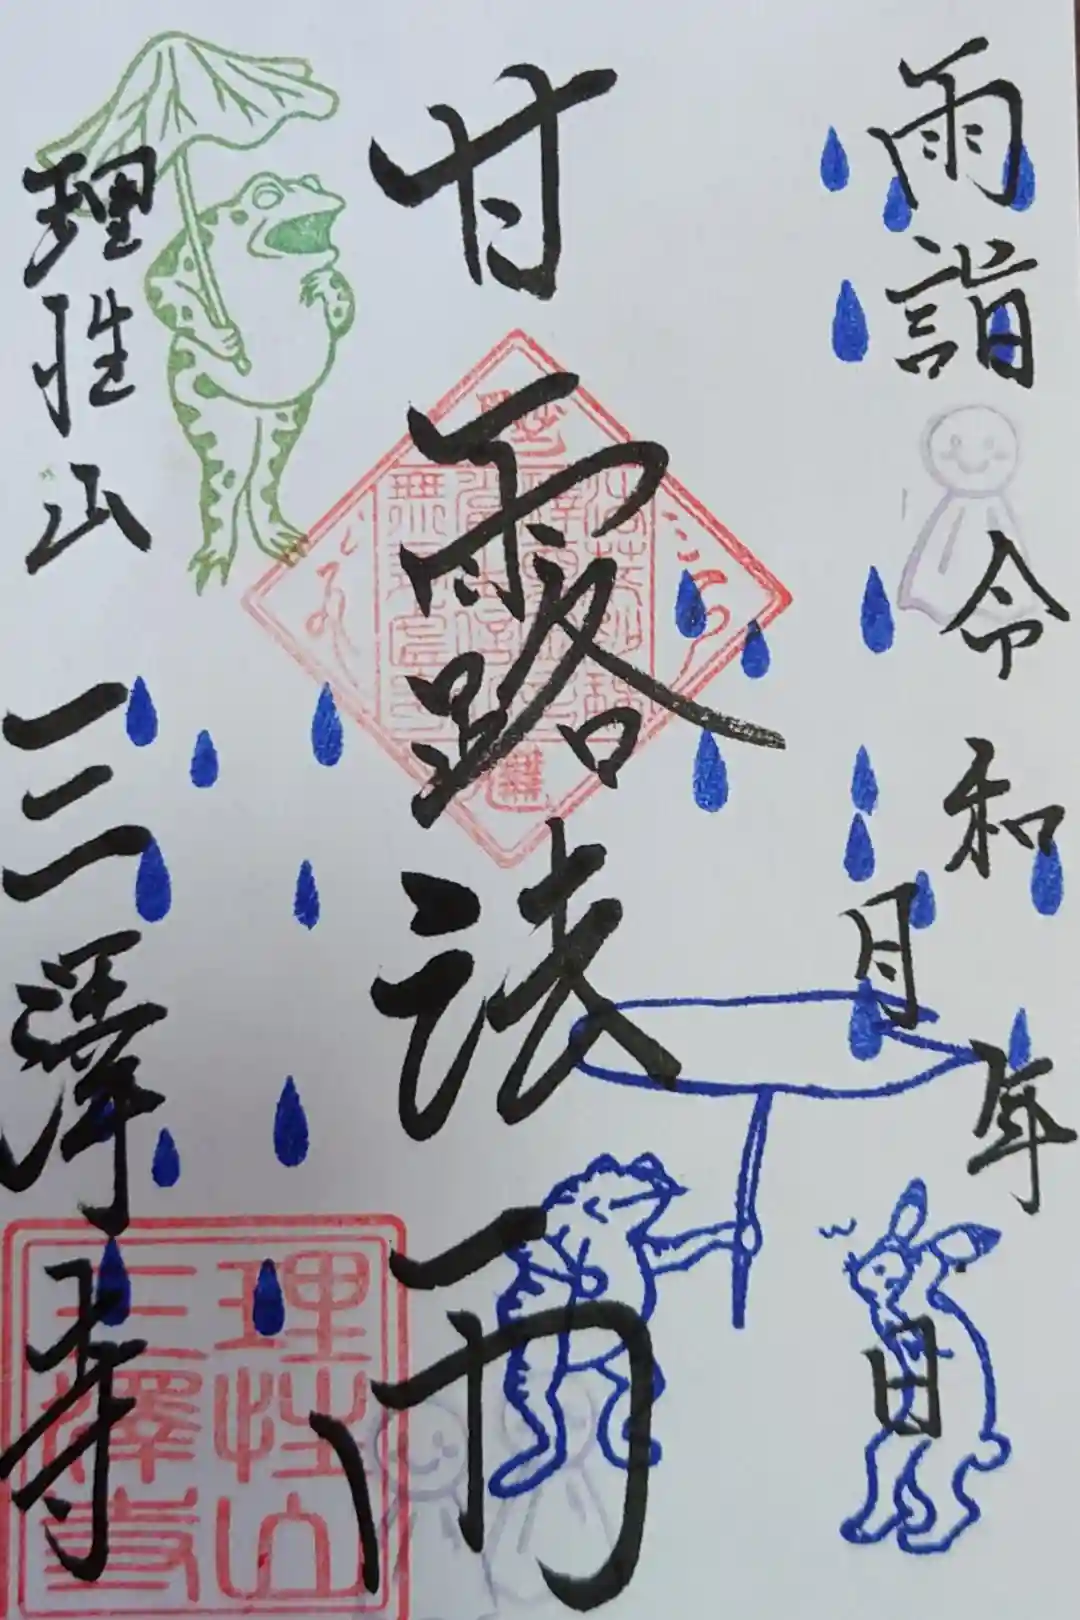 雨詣
令和 年
月 日
甘露法雨
理性山 三澤寺
理性山
三澤寺